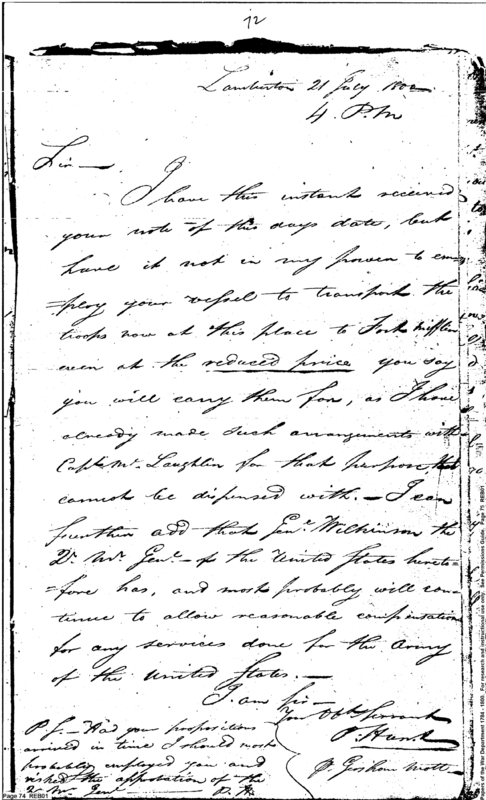 72
Lamberton 21 July 1802
4. P.M
Sir —
I have this instant received
your note of this days date, but
have it not in my power to em
=ploy your vessel to transport the
troops now at this place to Fort Mifflin
even at the reduced price you say
you will carry them for, as I have
already made such arrangements with
Capt. Mc. Laughlin for that purpose, that
cannot be dispensed with. — I can
further add that Genl. Wilkinson the
Qr. Mr. Genl. of the United States hereto-
=fore has, and most probably will con-
tinue to allow reasonable compensation
for any services done for the Army
of the United States. —
I am Sir —
Your Obt Servant
P. Hunt
P.S. — Had your propositions
arrived in time I should most
probably employed you and
risked the approbation of the
Q. Mr. Genl P. H.
Page 74 REB01
Papers of the War Department 1784 - 1800. For research and instructional use only. See Permissions Guide. Page 75 REB01